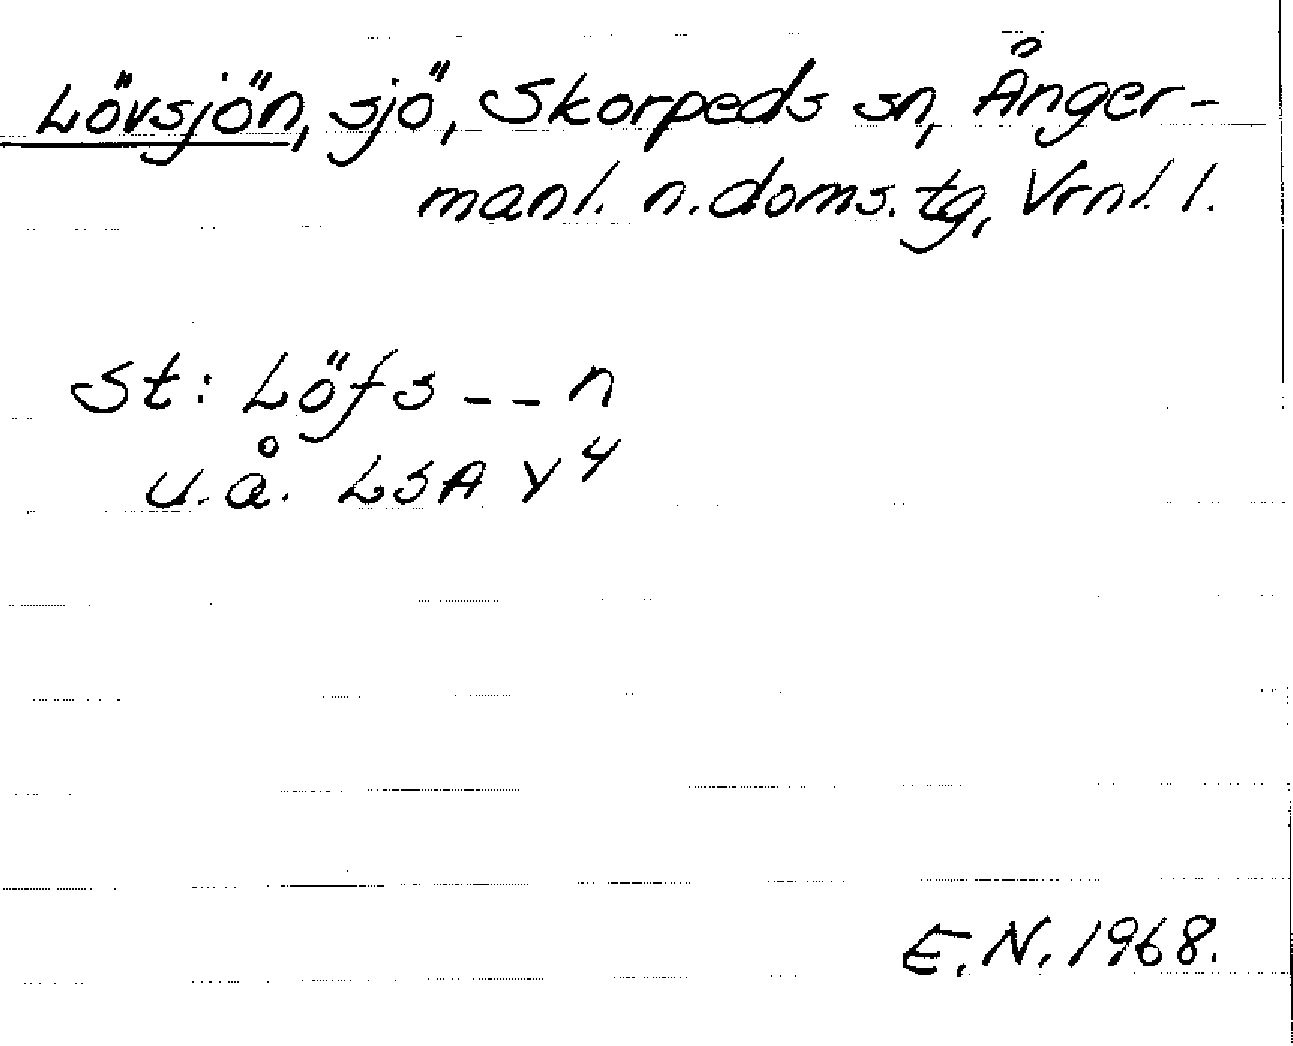 Lövsjön, sjö, Skorpeds sn, Ånger-
manl. n. doms. tg, Vrnl. l.
St: Löfs -- n
u.å. LSA Y4
E.N. 1968.